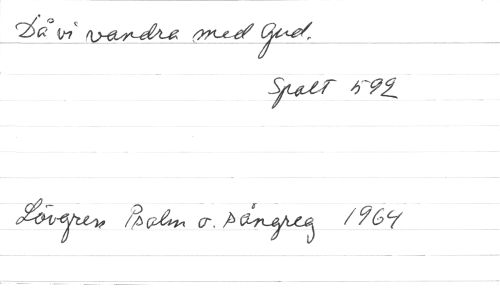 Då vi vandra med Gud.
Spalt 592
Lövgren Psalm o. sångreg 1964